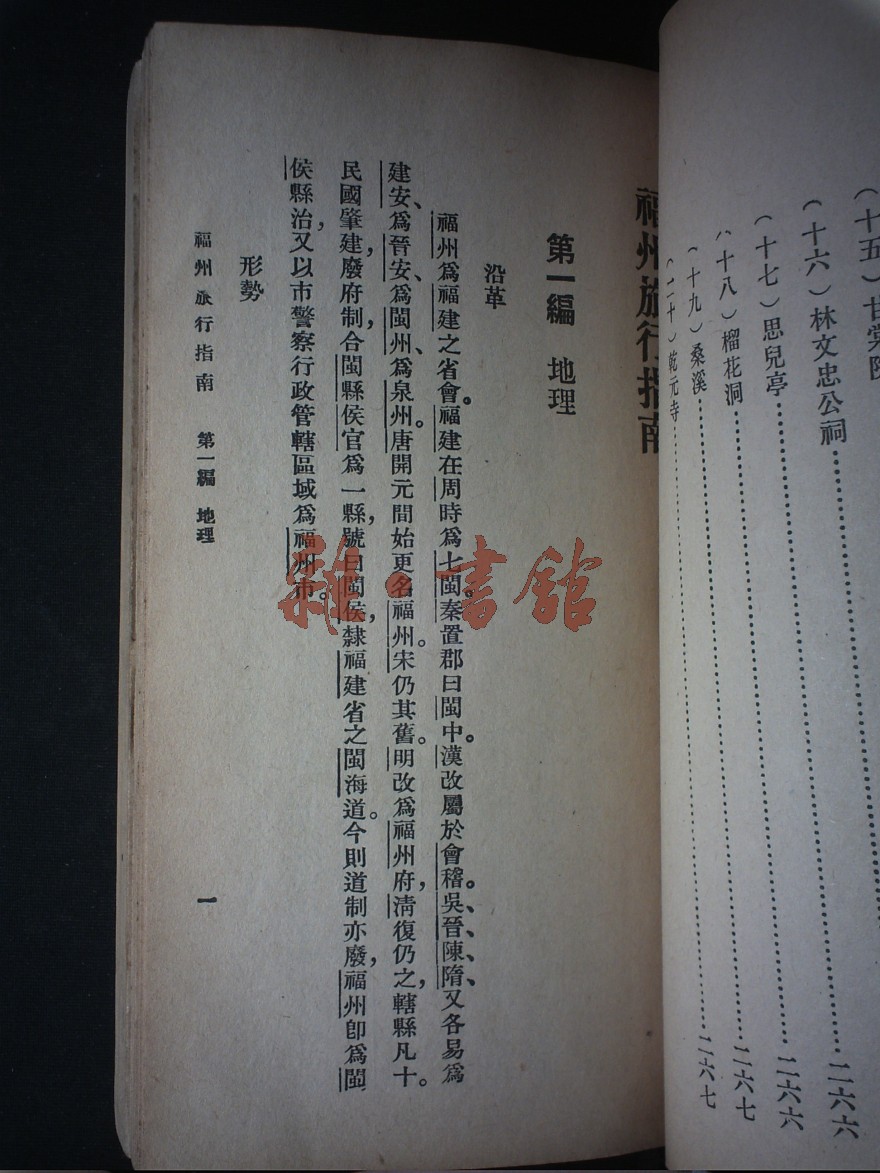 （十五）甘棠院
（十六）林文忠公祠……二六六
（十七）思兒亭……二六六
（十八）榴花洞……二六七
（十九）桑溪……二六七
（二十）乾元寺
福州旅行指南
第一編　地理
沿革
福州爲福建之省會。福建在周時爲七閩。秦置郡曰閩中。漢改屬於會稽。吳、晉、陳、隋、又各易爲
建安、爲晉安、爲閩州、爲泉州。唐開元間始更名福州。宋仍其舊。明改爲福州府，淸復仍之，轄縣凡十。
民國肇建，廢府制，合閩縣侯官爲一縣，號曰閩侯，隸福建省之閩海道。今則道制亦廢，福州卽爲閩
侯縣治，又以市警察行政管轄區域爲福州市。
形勢
福州旅行指南　第一編　地理
一
雜·書館